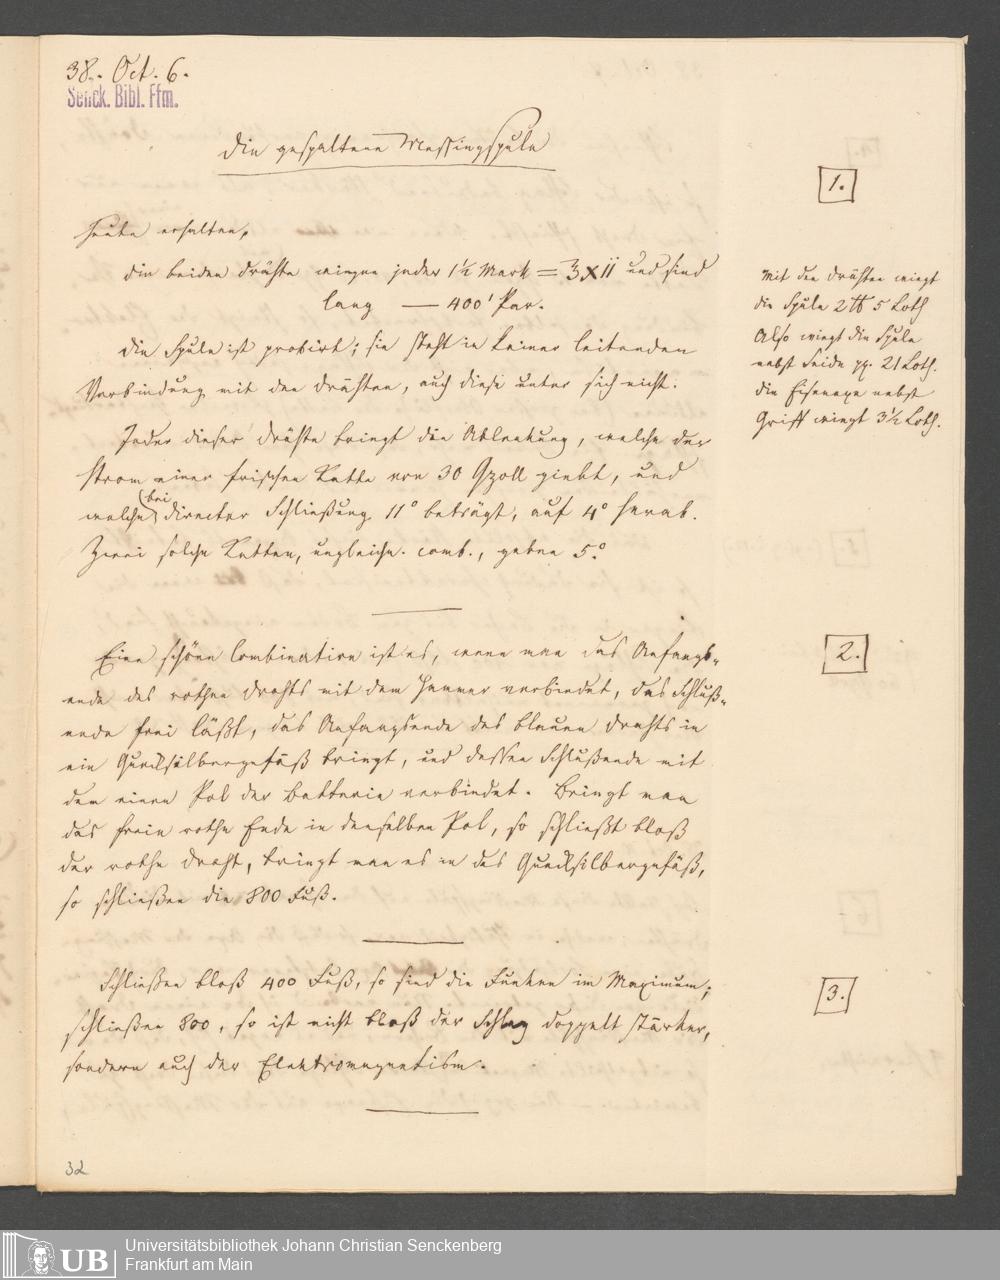 38. Oct. 6.
Senck. Bibl. Ffm.
Die gespaltene Messingspule
1.
Heute erhalten,
die beiden Drähte wiegen jeder 1½ Mark = ℥xii und sind
lang — 400' Par.
Die Spule ist probirt; sie steht in keiner leitenden
Verbindung mit den Drähten, auch diese unter sich nicht.
Jeder dieser Drähte bringt die Ablenkung, welche der
Strom einer frischen Kette von 30 Qzoll giebt, und
welche bei directer Schließung 11° beträgt, auf 4° herab.
Zwei solche Ketten, ungleichn. comb., geben 5°.
Mit den Drähten wiegt
die Spule 2 ℔ 5 Loth
Also wiegt die Spule
nebst Seide pp. 21 Loth.
die Eisenaxe nebst
Griff wiegt 3½ Loth.
2.
Eine schöne Combination ist es, wenn man das Anfangs-
ende des rothen Drahts mit dem Hammer verbindet, das Schluß-
ende frei läßt, das Anfangsende des blauen Drahts in
ein Quecksilbergefäß bringt, und dessen Schlußende mit
dem einen Pol der Batterie verbindet. Bringt man
das freie rothe Ende in denselben Pol, so schließt bloß
der rothe Draht, bringt man es in das Quecksilbergefäß,
so schließen die 800 Fuß.
3.
Schließen bloß 400 Fuß, so sind die Funken im Maximum;
schließen 800, so ist nicht bloß der Schlag doppelt stärker,
sondern auch der Elektromagnetism.
32
UB
Universitätsbibliothek Johann Christian Senckenberg
Frankfurt am Main